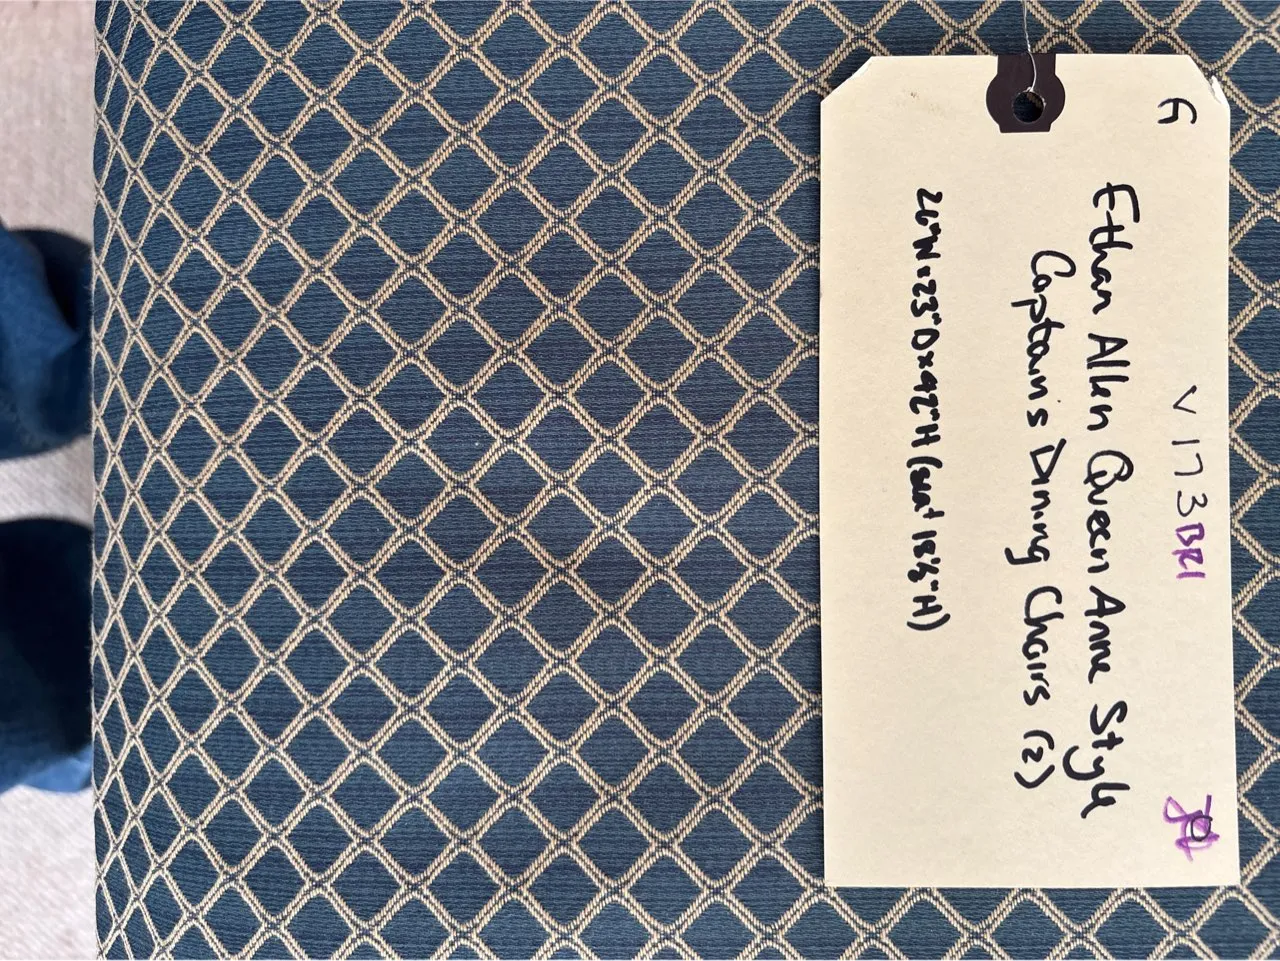 G
V173BRI
Ethan Allen Queen Anne Style
Captain's Dining Chairs (2)
26"W x 23"D x 42"H (seat 18½"H)